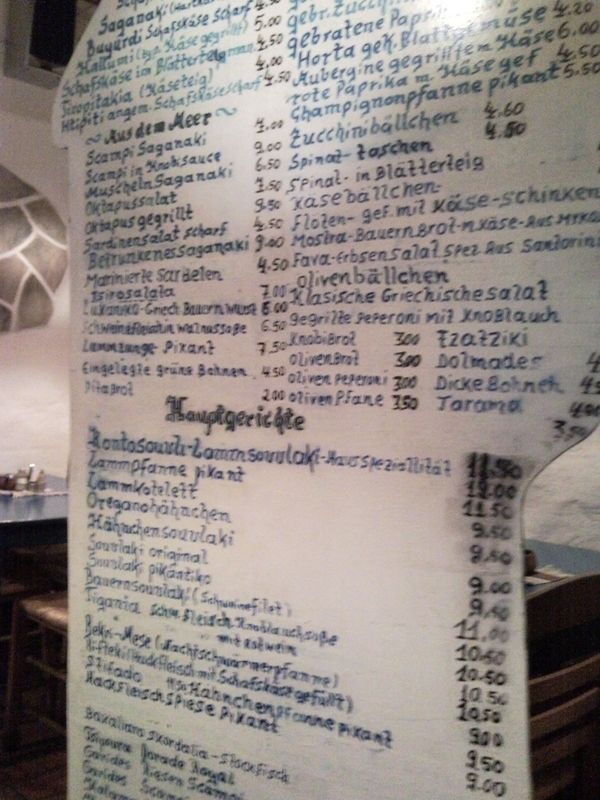 Saganaki
Buyurdi Schafskäse scharf 5.00
Hallumi (zyp. Käse gegrillt) 4.50
Schafskäse im Blätterteig
Tiropitakia (Käseteig) 4.00
Htipiti angem. Schafskäse scharf 4.50
~ Aus dem Meer ~
Scampi Saganaki 7.00
Scampi in Knobisauce 9.00
Muscheln Saganaki 6.50
Oktapussalat 7.50
Oktapus gegrillt 9.50
Sardinensalat scharf 4.50
Betrunkenes Saganaki 9.00
Marinierte Sardellen 4.50
Tsirosalata 7.00
Lukaniko-Griech Bauernwurst 6.00
Schweinefleisch in Walnussoße 6.50
Lammzunge Pikant 7.50
Eingelegte grüne Bohnen 4.50
Pitabrot 2.00
gebr. Zucchini
gebratene Paprik
Horta gek. Blattgemüse 4.20
Aubergine gegrillt m. Käse 6.00
rote Paprika m. Käse gef 4.50
Champignonpfanne pikant 5.50
Zucchinibällchen 4.60
Spinat-taschen 4.80
Spinat-in Blätterteig
Käsebällchen
Flöten- gef. mit Käse-Schinken
Mostra-Bauern Brot-m Käse-Aus
Fava-Erbsensalat Spez. Aus Santorin
olivenbällchen
Klasische Griechische salat
gegrillte Peperoni mit Knoblauch
Knobibrot 3.00 Tzatziki
olivenBrot 3.00 Dolmades
oliven Peperoni 3.00 Dicke Bohnen
oliven Pfane 3.50 Tarama
3.50
Hauptgerichte
Kontosouvli-Lammsouvlaki-Haus Speziallität 11.50
Lammpfanne pikant 12.00
Lammkotelett 11.50
Oreganohähnchen 9.50
Hähnchensouvlaki 8.50
Souvlaki original 9.00
Souvlaki pikantiko 9.50
Bauernsouvlaki (Schweinefilet) 11.00
Tigania Schw. Fleisch Knoblauchsoße 10.50
mit Rotwein
Bekri-Mese (Nachtschwärmerpfanne) 10.50
Bifteki (Hackfleisch mit Schafskäse gefüllt) 10.50
Stifado Hähnchenpfanne pikant 10.50
Hackfleischspiese Pikant 9.00
Bakaliaro skordalia-Stockfisch 9.50
Tsipoura Dorade Royal 9.00
Garides Riesen Scampi
Garides